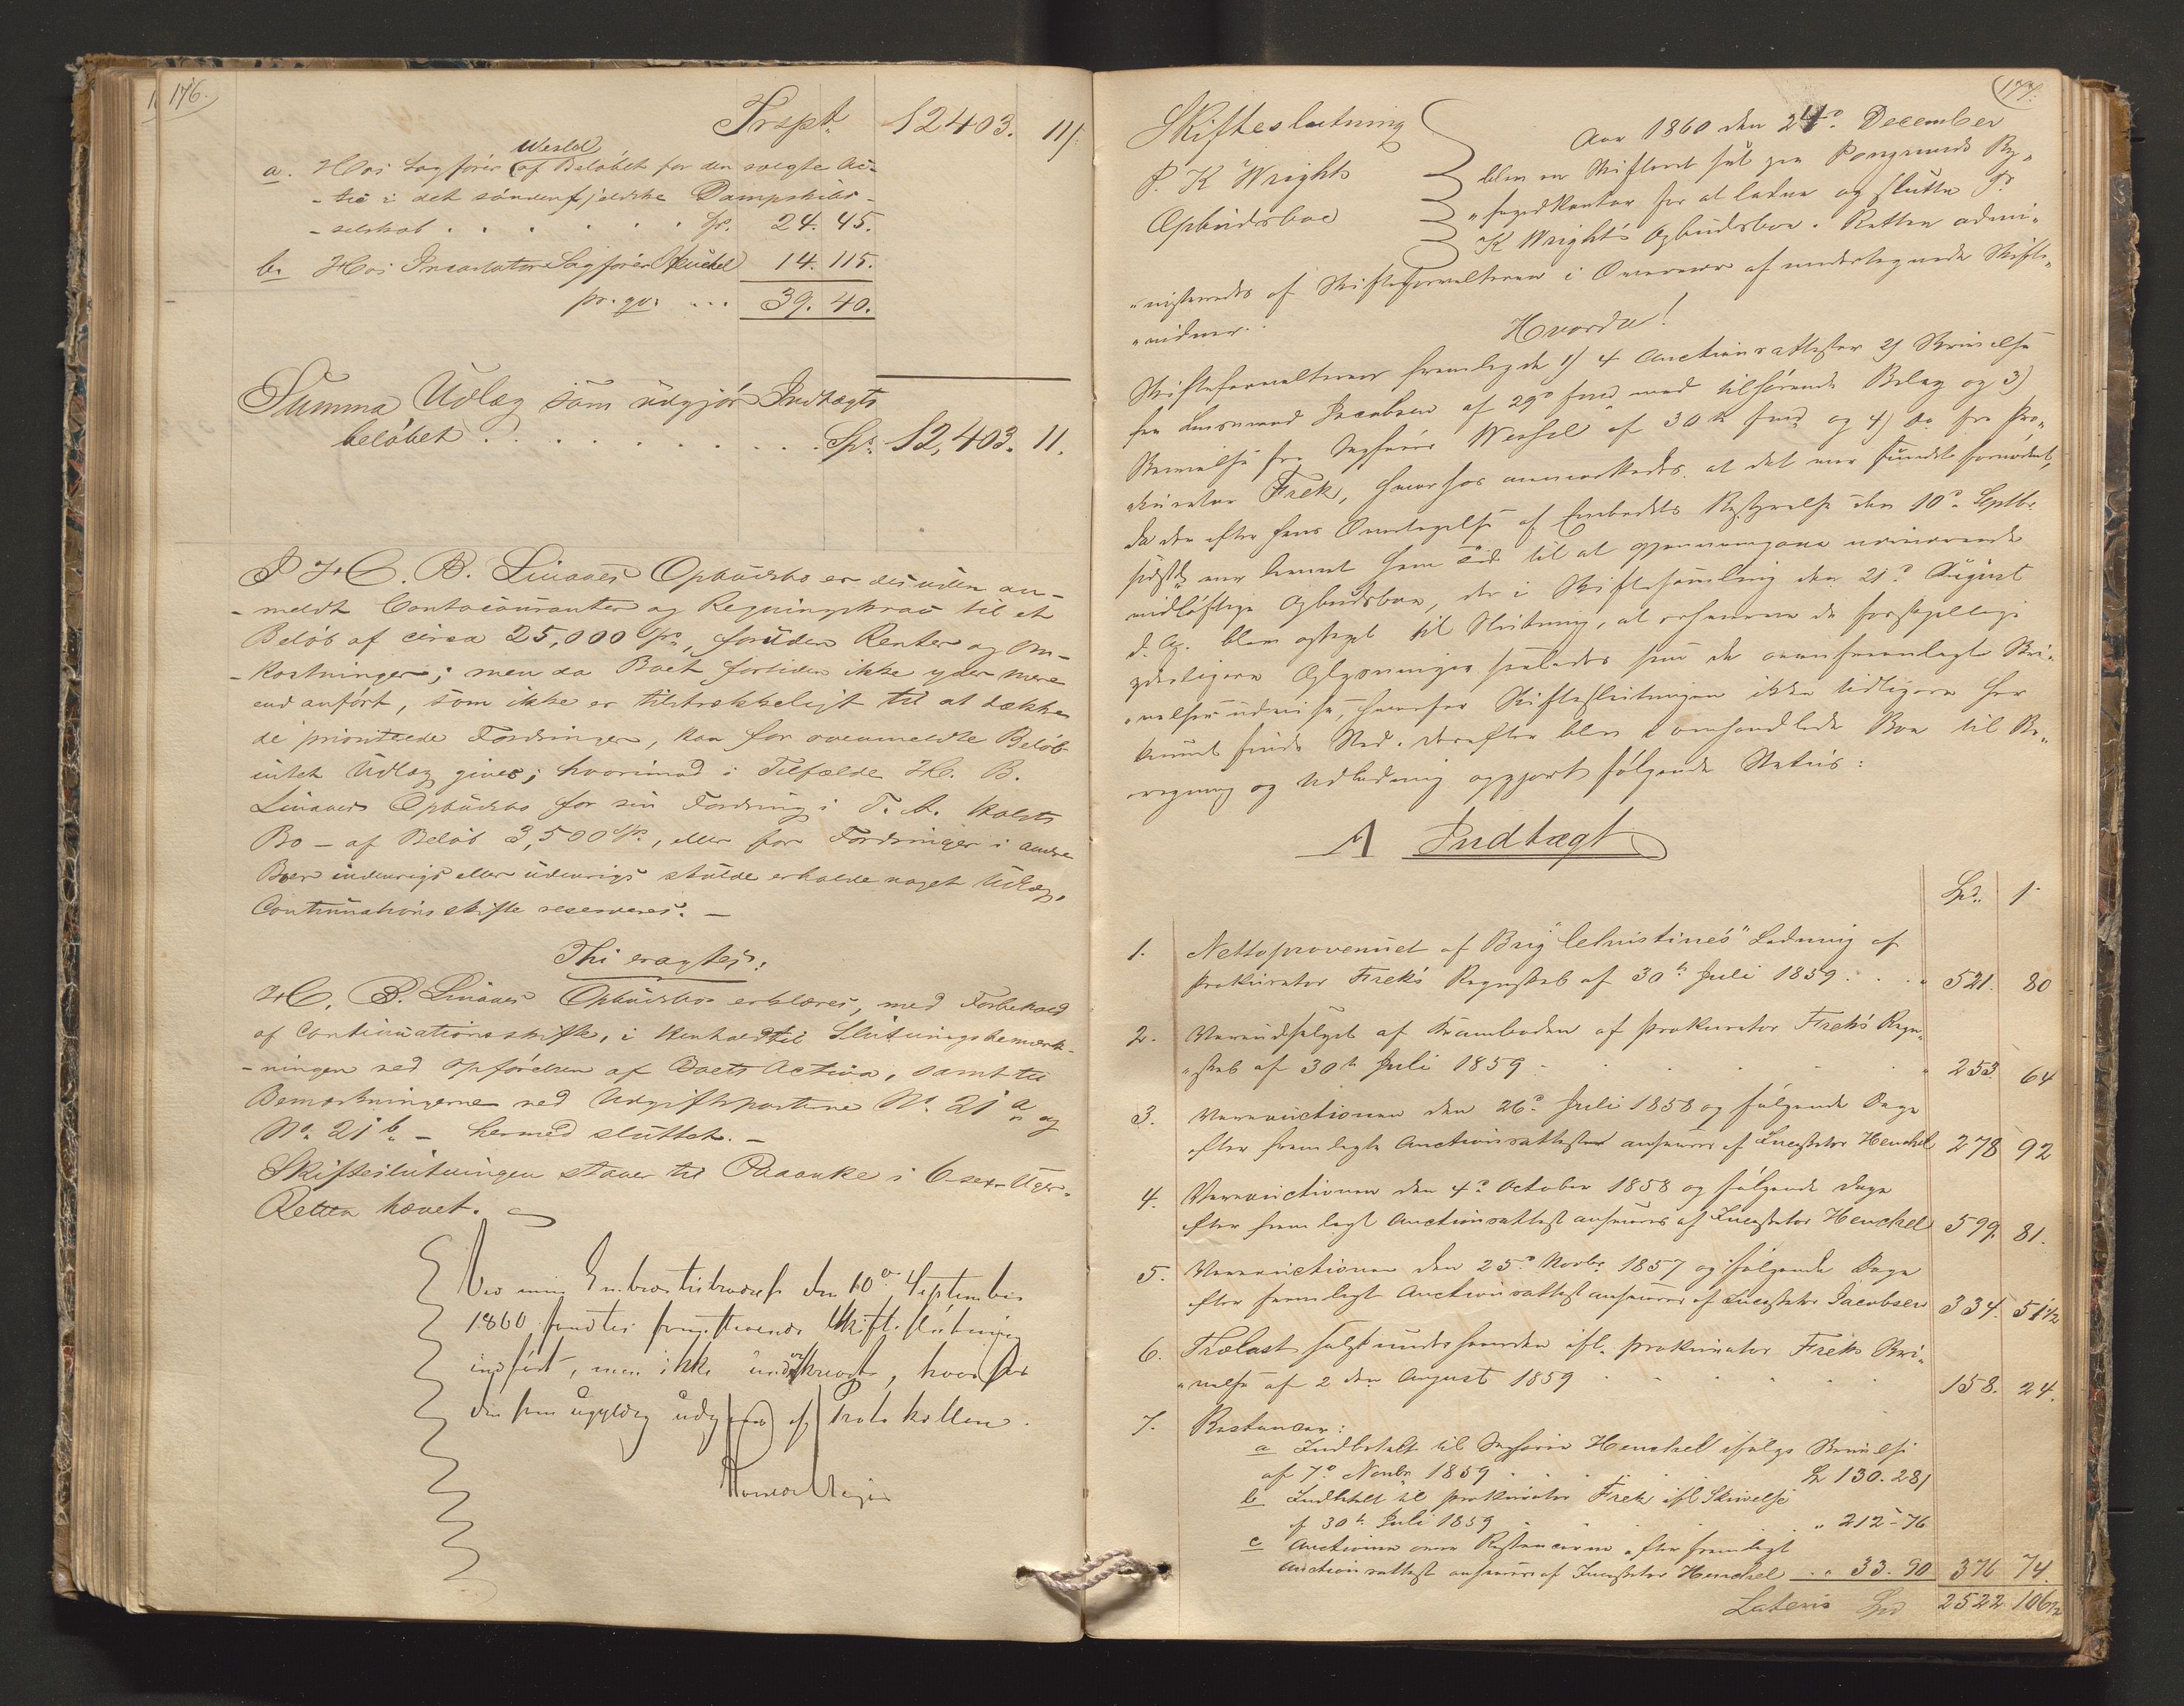 176.
Trspt. 12403. 11.
a. Hos Sagfører Wessel af Beløbet for den solgte Ac-
-tie i det søndenfjeldske Dampskibs-
-selskab . . . . . . Sp. 24. 45.
b. Hos Incassator Sagfører Heuchel 14. 115.
pr. qvi ... 39. 40.
Summa Udlæg som udgjør Indtægts
beløbet . . . . . . . . . Sp. 12,403. 11.
I H. B. Linaaes Opbudsbo er desuden an-
-meldt Contocouranter og Regningskrav til et
Beløb af circa 25,000 Sp., foruden Renter og Om-
-kostninger; men da Boet fortiden ikke yder mere
end anført, som ikke er tilstrækkeligt til at dække
de prioriterede Fordringer, kan for ovenmeldte Beløb
intet Udlæg gives; hvorimod i Tilfælde H. B.
Linaaes Opbudsbo for sin Fordring i T. A. Holsts
Bo - af Beløb 3,500 Sp., eller for Fordringer i andre
Boer indenrigs eller udenrigs skulde erholde noget Udlæg,
Continuationsskifte reserveres. -
Thi eragtes:
H. B. Linaaes Opbudsbo erklæres, med Forbehold
af Continuationsskifte, i Henhold til Slutningsbemærk-
-ningen ved Opførelsen af Boets Activa, samt til
Bemærkningerne ved Udgiftsposterne No. 21 a og
No. 21 b - hermed sluttet. -
Skifteslutningen staaer til Paaanke i 6 sex Uger.
Retten hævet.
Ved min Embedstiltrædelse den 10de September
1860 fandtes foranstaaende Skifteslutning
indført, men ikke underskrevet, hvorfor
den som ugyldig udgaaer af Protokollen.
177.
Skifteslutning
P. K Wrights
Opbudsboe
Aar 1860 den 24d. December
blev en Skifteret sat paa Porsgrunds By-
"fogedkontor for at lade og slutte P.
K Wright's Opbudsboe. Retten admi-
"nistreredes af Skifteforvalteren i Overvær af undertegnede Skifte-
"vidner.
Hvorda!
Skifteforvalteren fremlagde 1) 4 Auctionsattester 2) Skrivelse
fra Lensmand Jacobsen af 29d fmd med tilhørende Belag og 3)
Skrivelse fra Sagfører Wessel af 30te fmd og 4) do fra Pro-
"kurator Frek, hvorhos anmærkedes, at det var fundet fornødent,
da der efter hans Overtagelse af Embedets Bestyrelse den 10d Septbr.
sidstl. var levnet ham Tid til at gjennemgaae nærværende
vidløftige Opbudsboe, der i Skiftesamling den 21d August
d. A. blev optaget til Slutning, at erhverve de forskjellige
yderligere Oplysninger saaledes som de ovenfremlagte Skri-
"velser udvise, hvorfor Skifteslutningen ikke tidligere har
kunnet finde Sted. Derefter blev i omhandlede Boe til Be-
"regning og Udlodning opgjort følgende Status:
A Indtægt
Spd. ß
1. Nettoprovenuet af Brig "Christine's" Ladning af
Prokurator Frek's Regnskab af 30te Juli 1859 . . . " 521. 80
2. Vareudsalget af Kramboden af Prokurator Frek's Regn-
"skab af 30te Juli 1859 . . . . . " 253. 64
3. Vareauctionen den 26d Juli 1858 og følgende Dage
efter fremlagte Auctionsattest anføres af Incassator Heuchel 278 92
4. Vareauctionen den 4d October 1858 og følgende Dage
efter fremlagt Auctionsattest anføres af Incassator Heuchel 599. 81.
5. Vareauctionen den 25d Novbr. 1857 og følgende Dage
efter fremlagt Auctionsattest anføres af Incassator Jacobsen 334. 51½
6. Trælast solgt underhaanden ifl. Prokurator Freks Skri-
"velse af 2 den August 1859 . . . . . 158. 24.
7. Restancer:
a Indbetalt til Sagfører Heuchel ifølge Skrivelse
af 7d Novbr. 1859 . . . . Sp 130. 28
b Indbetalt til Prokurator Frek ifl Skrivelse
af 30te Juli 1859 . . . . " 212 - 76
c Auctionen over Restancerne efter fremlagt
Auctionsattest anføres af Incassator Heuchel . . " 33. 90 376 74.
Lateris Spd 2522 106½